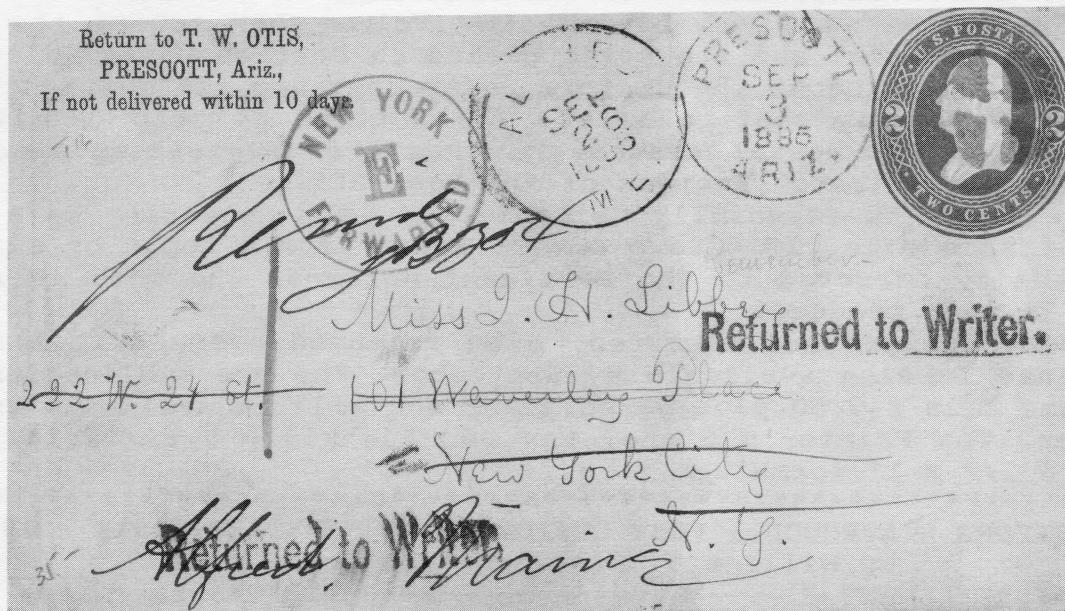 Return to T. W. OTIS,
PRESCOTT, Ariz.,
If not delivered within 10 days.
NEW YORK
E
FORWARDED
PRESCOTT
SEP
3
1886
ARIZ.
U.S. POSTAGE
2 2
TWO CENTS
Miss I. H. Libbey
Returned to Writer.
222 W. 24 St.
101 Waverley Place
New York City
N. Y.
Returned to Writer
Alfred, Maine
35